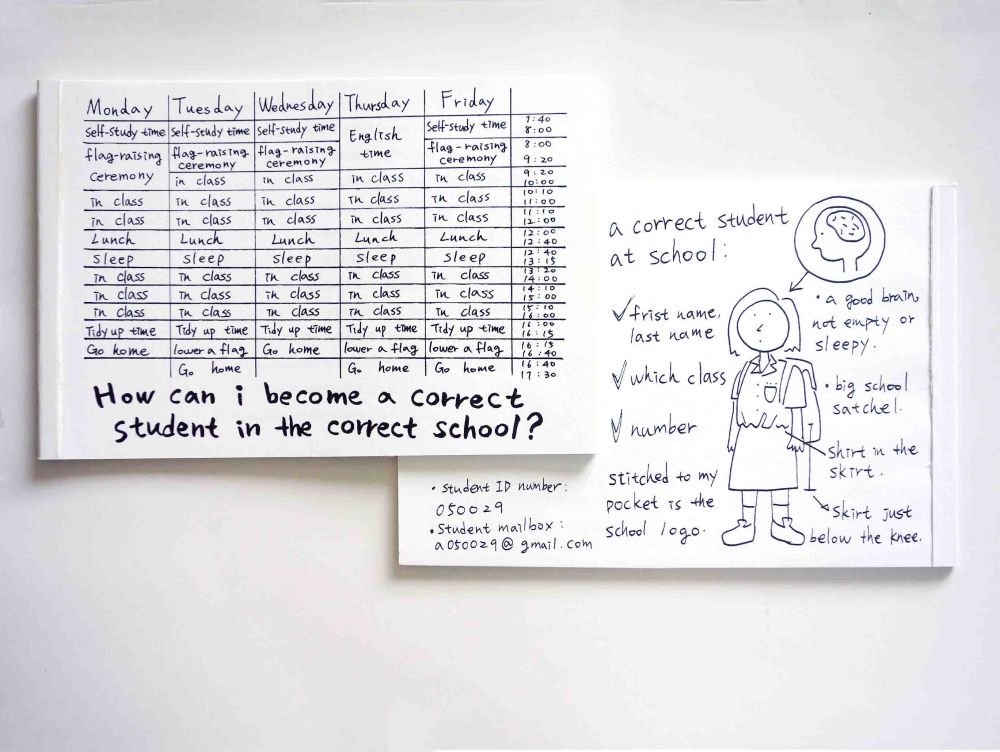 Monday Tuesday Wednesday Thursday Friday
Self-study time Self-study time Self-study time English time Self-study time 7:40 8:00
flag-raising ceremony flag-raising ceremony flag-raising ceremony flag-raising ceremony 8:00 9:20
in class in class in class in class 9:20 10:00
in class in class in class in class in class 10:10 11:00
in class in class in class in class in class 11:10 12:00
Lunch Lunch Lunch Lunch Lunch 12:00 12:40
sleep sleep sleep sleep sleep 12:40 13:15
in class in class in class in class in class 13:20 14:00
in class in class in class in class in class 14:10 15:00
in class in class in class in class in class 15:10 16:00
Tidy up time Tidy up time Tidy up time Tidy up time Tidy up time 16:00 16:15
Go home lower a flag Go home lower a flag lower a flag 16:15 16:40
Go home Go home Go home 16:40 17:30
How can i become a correct
student in the correct school?
• student ID number:
050029
• Student mailbox:
a050029@gmail.com
a correct student
at school:
✓ frist name,
last name
✓ which class
✓ number
stitched to my
pocket is the
school logo.
• a good brain,
not empty or
sleepy.
• big school
satchel.
shirt in the
skirt.
skirt just
below the knee.